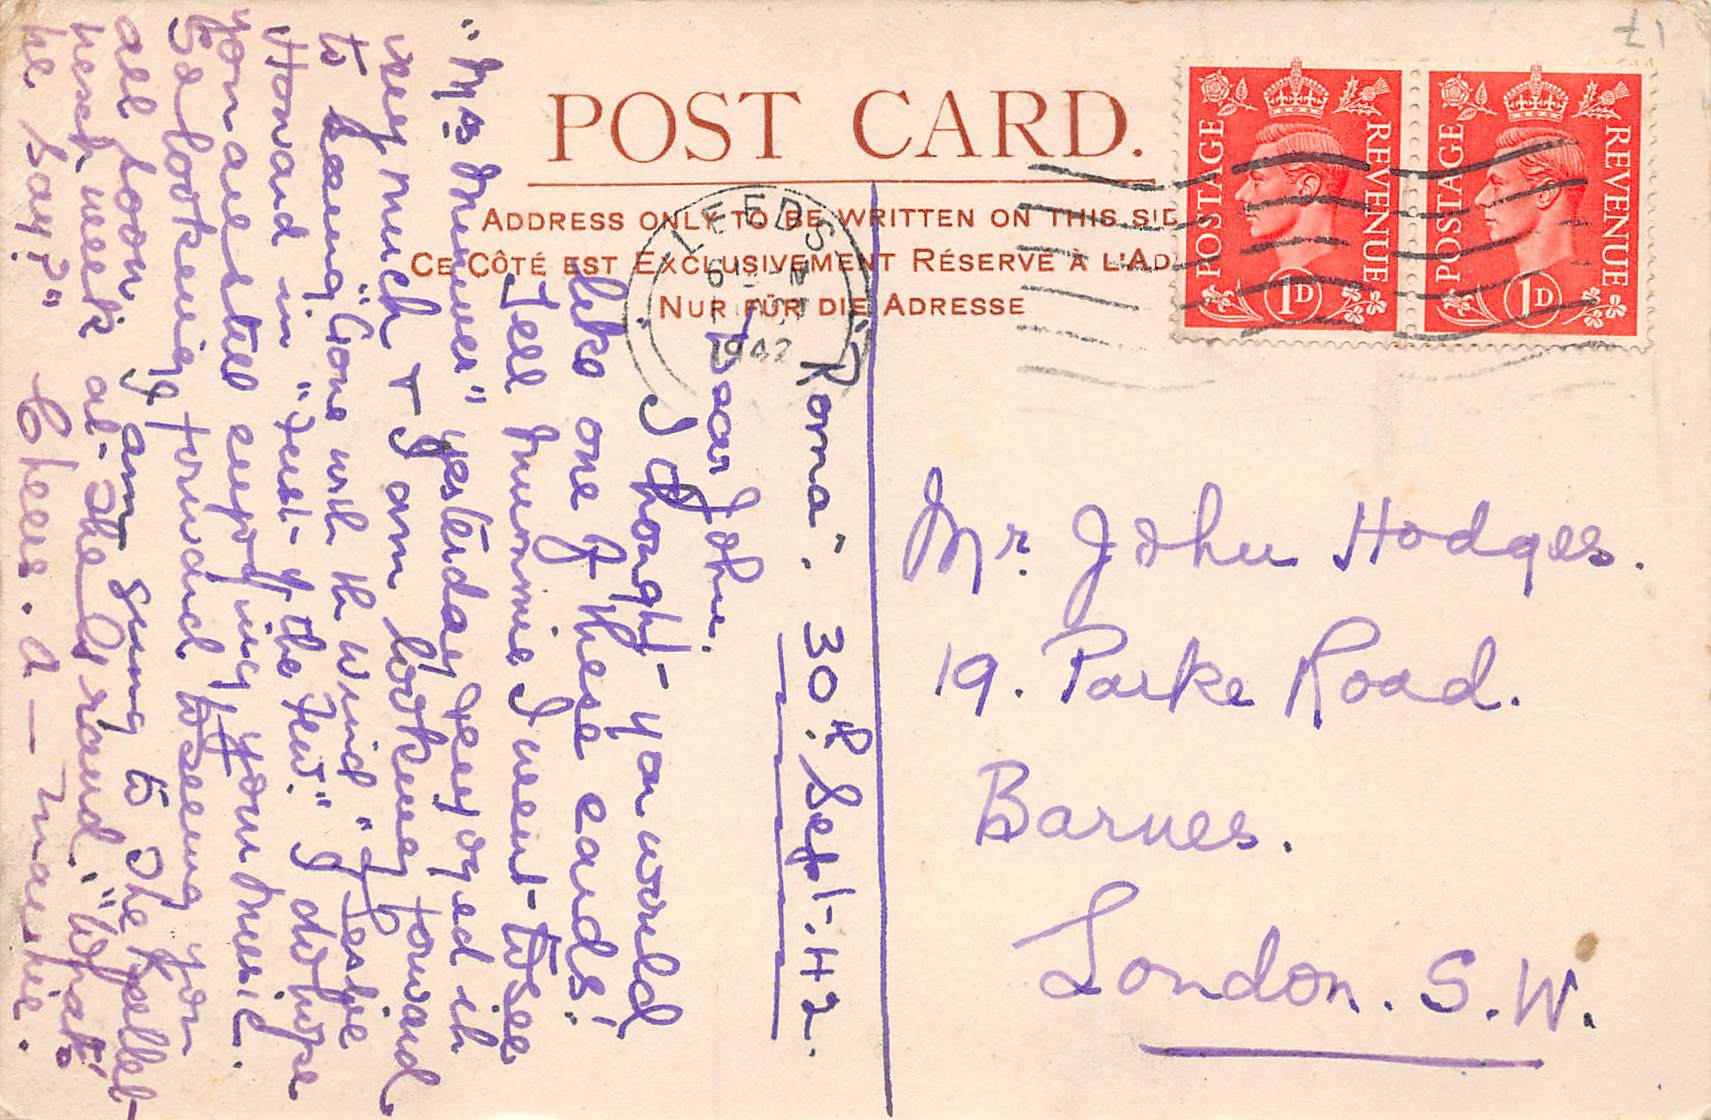 £1
POST CARD.
ADDRESS ONLY TO BE WRITTEN ON THIS SID
CE CÔTÉ EST EXCLUSIVEMENT RÉSERVÉ À L'AD
NUR FÜR DIE ADRESSE
POSTAGE REVENUE
1D
POSTAGE REVENUE
1D
LEEDS
1942
"Roma". 30th Sept-. 42.
Dear John.
I thought - you would
like one of these cards!
Tell Mummie I went - to see
"Mrs Miniver" yesterday & enjoyed it
very much & I am looking forward
to seeing "Gone with the Wind" & Leslie
Howard in "First - of the Few." I do hope
you are still enjoying your music.
Be looking forward to seeing you
all soon. I am going to the Ballet -
next week at - the Grand. "What's
he say?" Cheers. A — Mackie.
Mr. John Hodges.
19. Parke Road.
Barnes.
London. S.W.